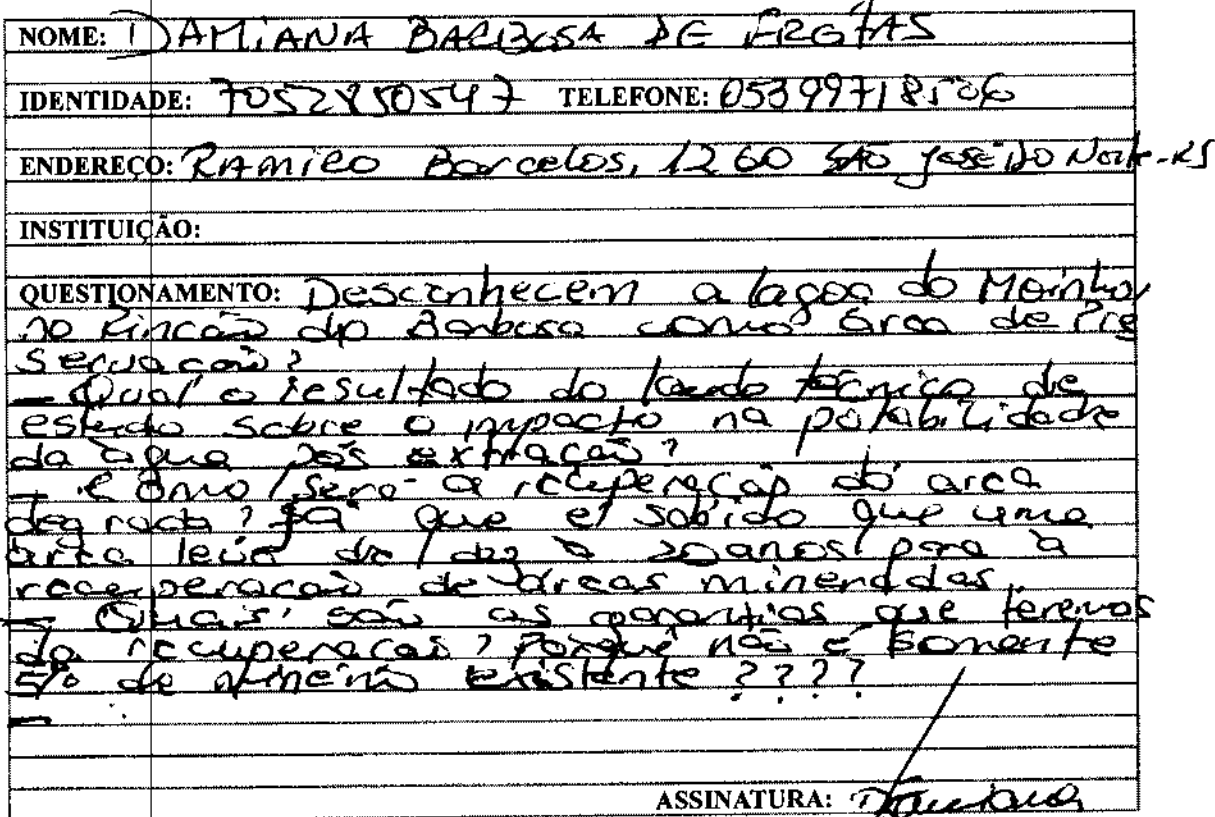 NOME: DAMIANA BARBOSA DE FREITAS
IDENTIDADE: 7052850547 TELEFONE: 053999718506
ENDEREÇO: RAMIRO Barcelos, 1260 SÃO JOSÉ DO Norte-RS
INSTITUIÇÃO:
QUESTIONAMENTO: Desconhecem a lagoa do Moinho,
no Rincão do Barbosa como área de Pre
servação?
- Qual o resultado do laudo técnico de
estudo sobre o impacto na potabilidade
da água pós extração?
- Como será a recuperação da área
degrada? Já que é sabido que uma
área leva de dez a 20 anos para a
recuperação de áreas mineradas.
- Quais são as garantias que teremos
da recuperação? Porquê não é somente
5% de minério existente ????
-
ASSINATURA: Damiana